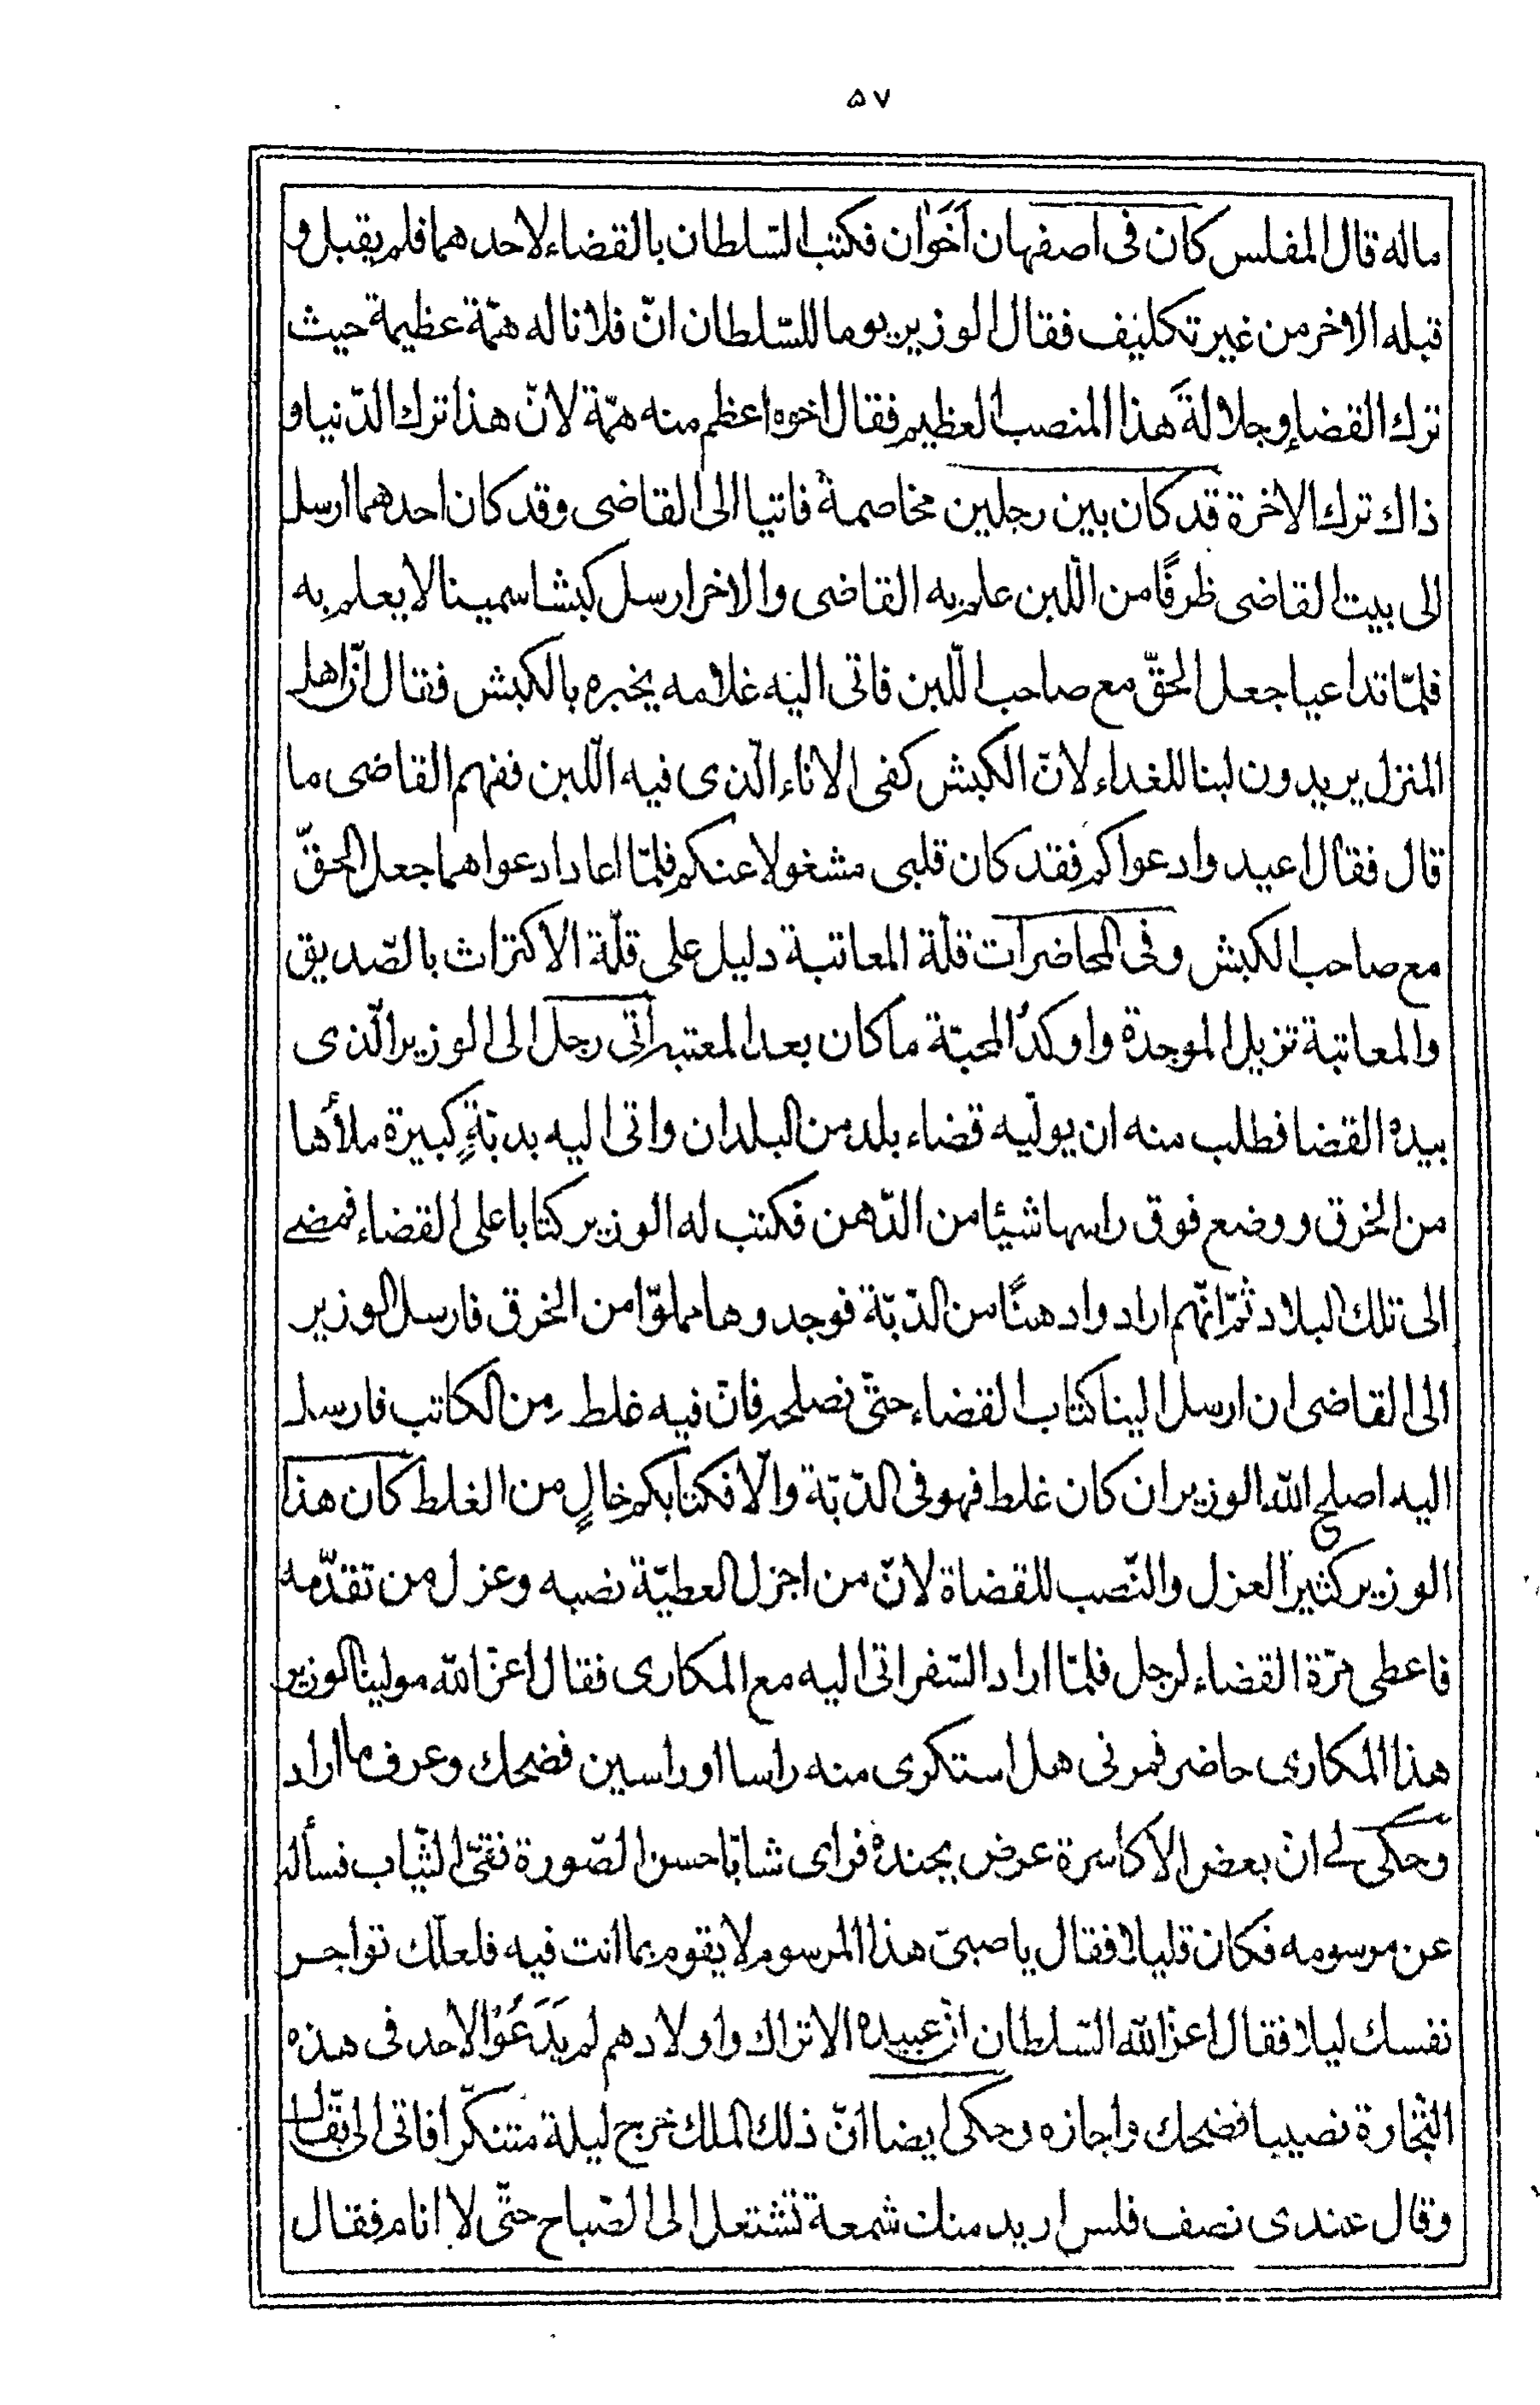 ۵۷
ماله قال المفلس كان فى اصفهان اَخَوٰان فكتب السّلطان بالقضاء لاحدهما فلم يقبل و
قبله الاخر من غير تكليف فقال الوزير يوما للسّلطان انّ فلانا له همّة عظيمة حيث
ترك القضاء وجلالةَ هذا المنصب العظيم فقال اخوه اعظم منه همّة لانّ هذا ترك الدّنيا و
ذاك ترك الاخرة قد كان بين رجلين مخاصمة فاتيا الى القاضى وقد كان احدهما ارسل
الى بيت القاضى ظرفًا من اللّبن علم به القاضى والاخر ارسل كبشا سمينا لا يعلم به
فلمّا تداعيا جعل الحقّ مع صاحب اللّبن فاتى اليه غلامه يخبره بالكبش فقال انّ اهل
المنزل يريدون لبنا للغداء لانّ الكبش كفى الاناء الّذى فيه اللّبن ففهم القاضى ما
قال فقال اعيدوا دعواكم فقد كان قلبى مشغولا عنكم فلمّا اعادا دعواهما جعل الحقّ
مع صاحب الكبش وفى المحاضرات قلّة المعاتبة دليل على قلّة الاكتراث بالصّديق
والمعاتبة تزيل الموجدة واوكدُ المحبّة ما كان بعد المعتبه اتى رجل الى الوزير الّذى
بيده القضا فطلب منه ان يولّيه قضاء بلد من البلدان واتى اليه بدبّةٍ كبيرة ملأها
من الخرق ووضع فوق راسها شيئا من الدّهن فكتب له الوزير كتابا على القضاء فمضى
الى تلك البلاد ثمّ انّهم ارادوا دهنًا من الدّبّة فوجدوها مملوّا من الخرق فارسل الوزير
الى القاضى ان ارسل الينا كتاب القضاء حتّى نصلحه فانّ فيه غلط من الكاتب فارسل
اليه اصلح الله الوزير ان كان غلط فهو فى الدّبّة والّا فكتابكم خالٍ من الغلط كان هذا
الوزير كثير العزل والنّصب للقضاة لانّ من اجزل العطيّة نصبه وعزل من تقدّمه
فاعطى مرّة القضاء لرجل فلمّا اراد السّفر اتى اليه مع المكارى فقال اعزّ الله مولينا الوزير
هذا المكارى حاضر فمرنى هل استكرى منه راسا او راسين فضحك وعرف ما اراد
وحكى لى انّ بعض الاكاسرة عرض بجنده فراى شابّا حسن الصّورة نقىّ الثّياب فسأله
عن مرسومه فكان قليلا فقال يا صبىّ هذا المرسوم لا يقوم بما انت فيه فلعلّك تواجر
نفسك ليلا فقال اعزّ الله السّلطان انّ عبيده الاتراك واولادهم لم يَدَعُوْا لاحد فى هذه
التّجارة نصيبا فضحك واجازه وحكى ايضا انّ ذلك الملك خرج ليلة متنكّرا فاتى الى بقّال
وقال عندى نصف فلس اريد منك شمعة تشتعل الى الصّباح حتّى لا انام فقال